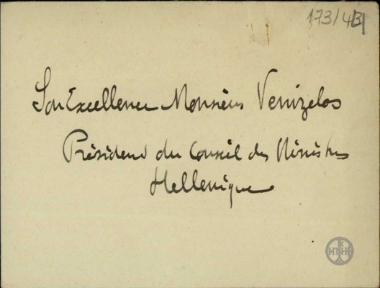 173/43
Son Excellence Monsieur Venizelos
Président du Conseil des Ministres
Hellenique